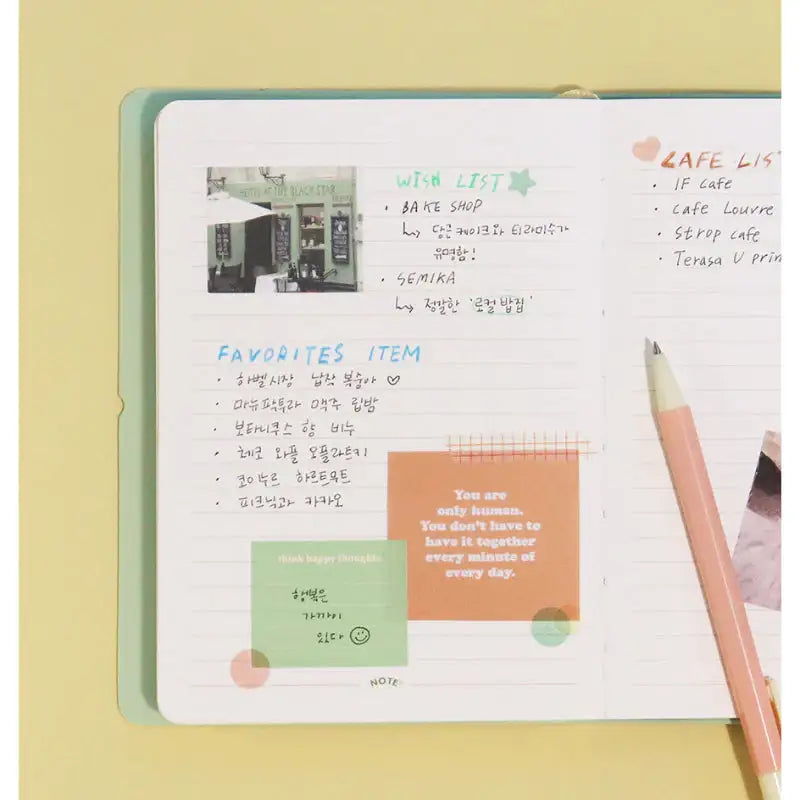 HOTEL AT THE BLACK STAR
WISH LIST
· BAKE SHOP
↳ 당근케이크와 티라미수가
유명함!
· SEMIKA
↳ 정갈한 '로컬 밥집'
FAVORITES ITEM
· 하벨시장 납작 복숭아 ♡
· 마뉴팍투라 맥주 립밤
· 보타니쿠스 향 비누
· 체코 와플 오플라트키
· 코이누르 하르트무트
· 피크닉과 카카오
You are
only human.
You don't have to
have it together
every minute of
every day.
think happy thoughts.
행복은
가까이
있다 ☺
NOTE
CAFE LIS
· IF Cafe
· Cafe Louvre
· Strop cafe
· Terasa U prin